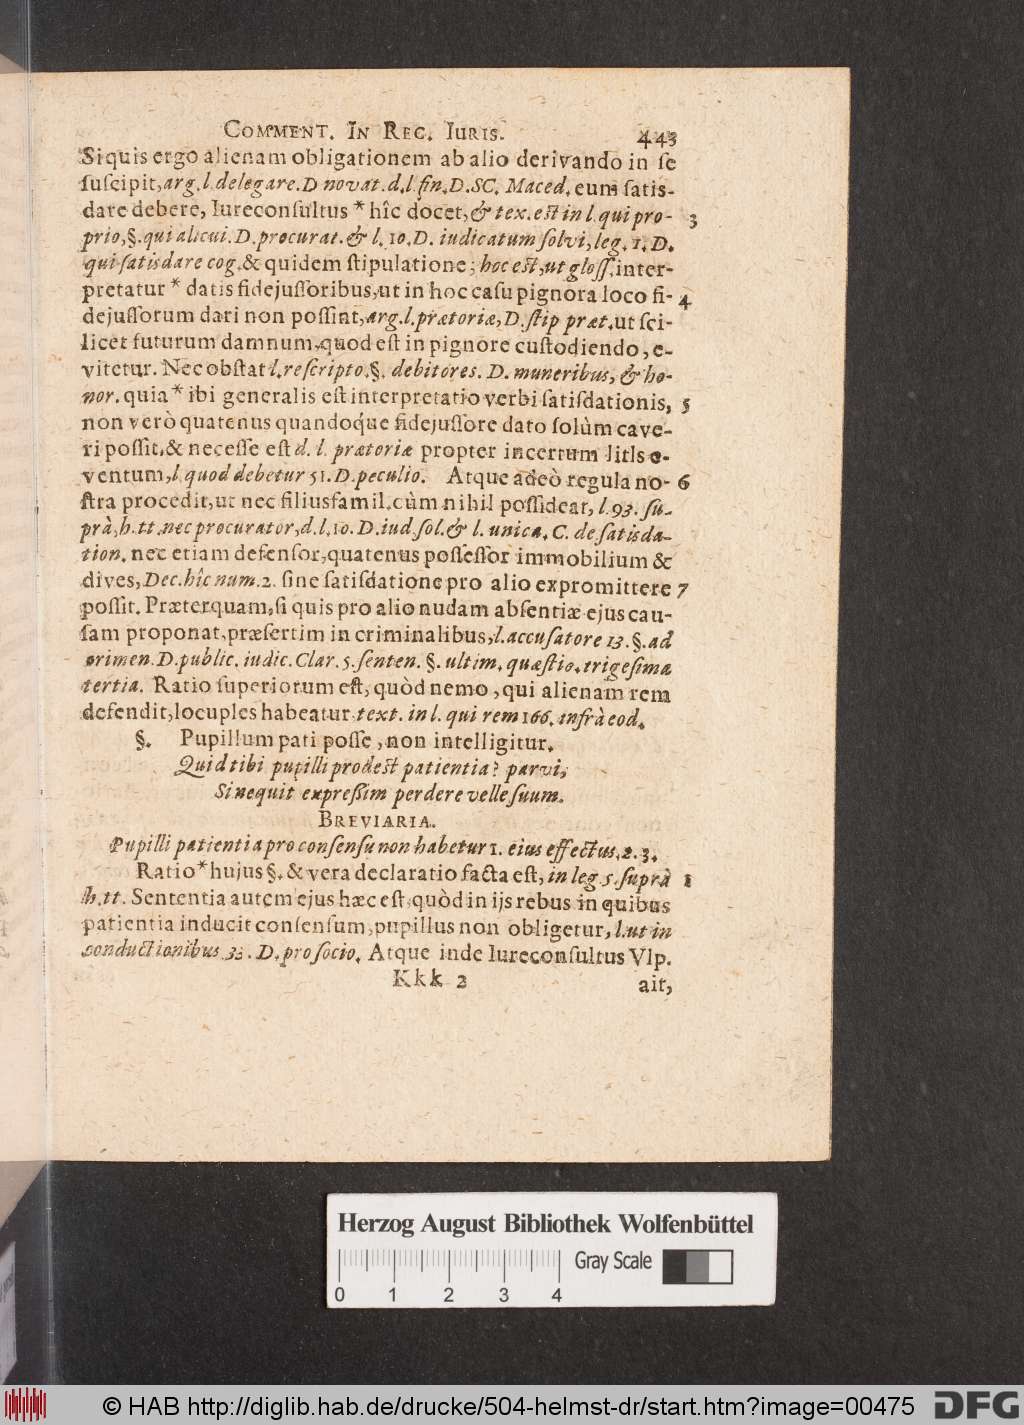 COMMENT. IN REG. IURIS. 443
Si quis ergo alienam obligationem ab alio derivando in ſe
ſuſcipit, arg. l. delegare. D novat. d. l. fin. D. SC. Maced. eum ſatis-
dare debere, Iureconſultus * hîc docet, & tex. eſt in l. qui pro- 3
prio, §. qui alicui. D. procurat. & l. 10. D. iudicatum ſolvi, leg. 1. D.
qui ſatisdare cog. & quidem ſtipulatione; hoc eſt, ut gloſſ. inter-
pretatur * datis fidejuſſoribus, ut in hoc caſu pignora loco fi- 4
dejuſſorum dari non poſſint, arg. l. prætoriæ, D. ſtip præt. ut ſci-
licet futurum damnum, quod eſt in pignore cuſtodiendo, e-
vitetur. Nec obſtat l. reſcripto. §. debitores. D. muneribus, & ho-
nor. quia * ibi generalis eſt interpretatio verbi ſatiſdationis, 5
non verò quatenus quandoq́ue fidejuſſore dato ſolùm cave-
ri poſſit, & neceſſe eſt d. l. prætoriæ propter incertum litis e-
ventum, l. quod debetur 51. D. peculio. Atque adeò regula no- 6
ſtra procedit, ut nec filiusfamil. cùm nihil poſſideat, l. 93. ſu-
prà, h. tt. nec procurator, d. l. 10. D. iud. ſol. & l. unica. C. de ſatisda-
tion. nec etiam defenſor, quatenus poſſeſſor immobilium &
dives, Dec. hîc num. 2. ſine ſatiſdatione pro alio expromittere 7
poſſit. Præterquam, ſi quis pro alio nudam abſentiæ ejus cau-
ſam proponat, præſertim in criminalibus, l. accuſatore 13. §. ad
crimen. D. public. iudic. Clar. 5. ſenten. §. ultim. quæſtio. trigeſima
tertia. Ratio ſuperiorum eſt, quòd nemo, qui alienam rem
defendit, locuples habeatur. text. in l. qui rem 166. infrà eod.
§. Pupillum pati poſſe, non intelligitur.
Quid tibi pupilli prodeſt patientia? parvi,
Si nequit expreßim perdere velle ſuum.
BREVIARIA.
Pupilli patientia pro conſenſu non habetur 1. eius effectus, 2. 3.
Ratio * hujus §. & vera declaratio facta eſt, in leg 5. ſuprà 1
h. tt. Sententia autem ejus hæc eſt, quòd in ijs rebus in quibus
patientia inducit conſenſum, pupillus non obligetur, l. ut in
conductionibus 33. D. pro ſocio. Atque inde Iureconſultus Vlp.
Kkk 2 ait,
Herzog August Bibliothek Wolfenbüttel
Gray Scale
0 1 2 3 4
© HAB http://diglib.hab.de/drucke/504-helmst-dr/start.htm?image=00475 DFG